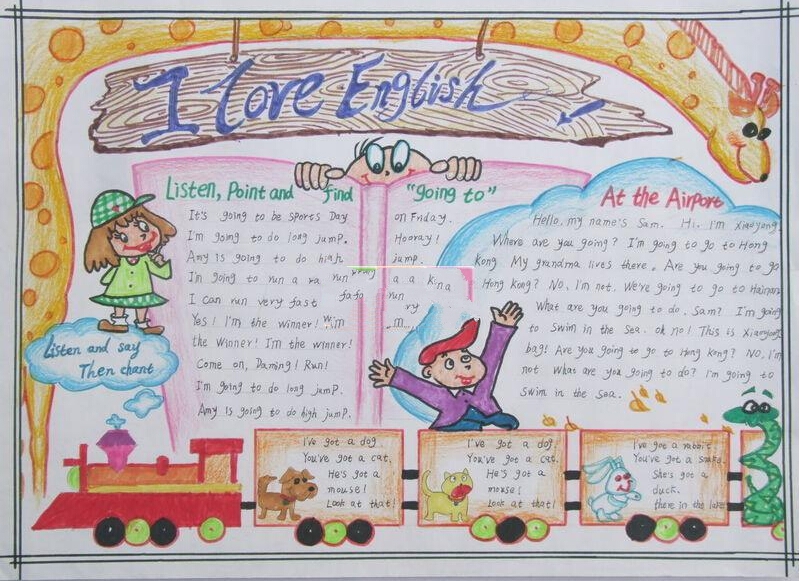 I Love English
Listen, Point and find "going to"
It's going to be Sports Day on Friday.
I'm going to do long jump. Hooray!
Amy is going to do high jump.
I'm going to run a
I can run very fast
Yes! I'm the winner!
the winner! I'm the winner!
Come on, Daming! Run!
I'm going to do long jump.
Amy is going to do high jump.
Listen and say
Then chant
At the Airport
Hello, my name's Sam. Hi, I'm Xiaoyong
Where are you going? I'm going to go to Hong
Kong. My grandma lives there. Are you going to go
Hong Kong? No, I'm not. We're going to go to Hainan
What are you going to do, Sam? I'm going
to swim in the sea. oh no! This is Xiaoyong
bag! Are you going to go to Hong Kong? No, I'm
not what are you going to do? I'm going to
swim in the sea.
I've got a dog.
You've got a cat.
He's got a
mouse!
Look at that!
I've got a dog.
You've got a cat.
He's got a
mouse!
Look at that!
I've got a rabbit.
You've got a snake.
She's got a
duck.
there in the lake!